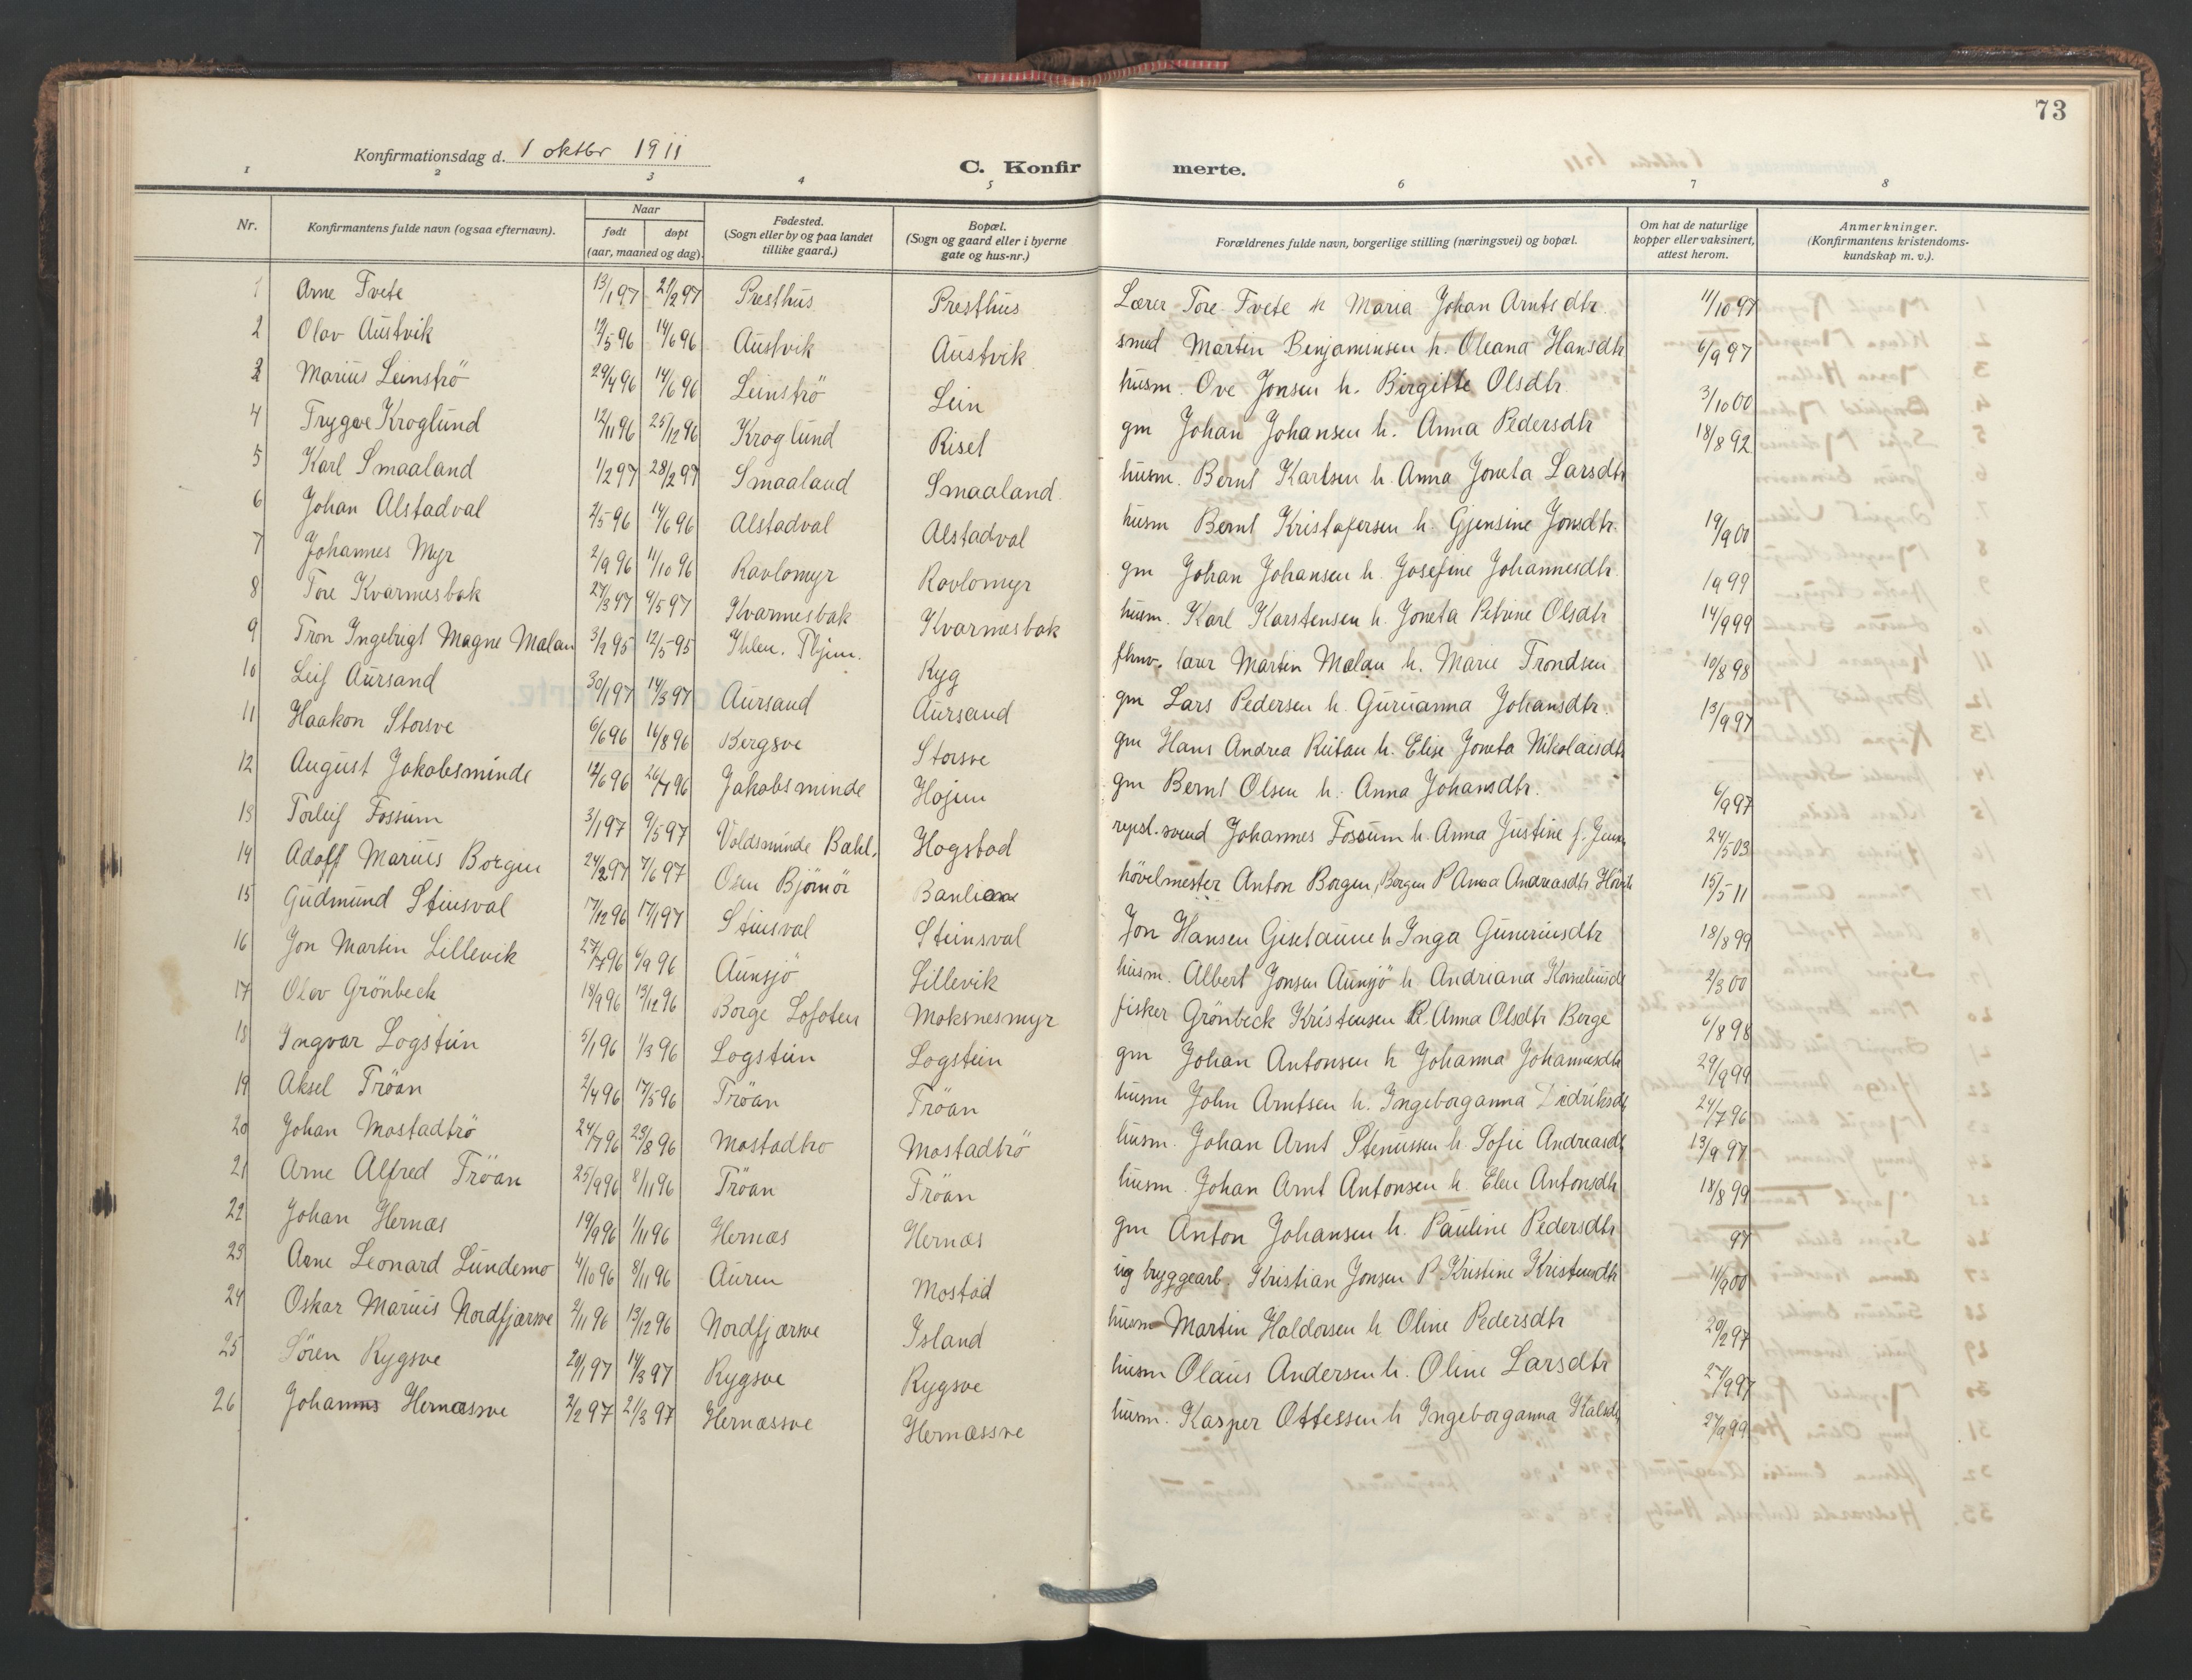 73
Konfirmationsdag d. 1 oktbr 1911
C. Konfirmerte.
1 2 3 4 5 6 7 8
Nr.
Konfirmantens fulde navn (ogsaa efternavn).
Naar
født døpt
(aar, maaned og dag).
Fødested.
(Sogn eller by og paa landet
tillike gaard.)
Bopæl.
(Sogn og gaard eller i byerne
gate og hus-nr.)
Forældrenes fulde navn, borgerlige stilling (næringsvei) og bopæl.
Om hat de naturlige
kopper eller vaksinert,
attest herom.
Anmerkninger.
(Konfirmantens kristendoms-
kundskap m. v.).
1 Arne Tvete 13/1 97 21/2 97 Presthus Presthus Lærer Tore Tvete h Maria Johan Arntsdtr. 11/10 97
2 Olav Austvik 12/5 96 14/6 96 Austvik Austvik smed Martin Benjaminsen h. Oleana Hansdtr 6/9 97
3 Marius Leinströ 29/4 96 14/6 96 Leinströ Lein husm. Ove Jonsen h. Birgitte Olsdtr. 3/10 00
4 Trygve Kroglund 12/11 96 25/12 96 Kroglund Risel gm Johan Johansen h. Anna Pedersdtr 18/8 92
5 Karl Smaaland 1/2 97 28/2 97 Smaaland Smaaland. husm. Bernt Karlsen h. Anna Joneta Larsdtr
6 Johan Alstadval 2/5 96 14/6 96 Alstadval Alstadval husm Bernt Kristofersen h. Gjensine Jonsdtr. 19/9 00
7 Johannes Myr 2/9 96 11/10 96 Ravlomyr Ravlomyr gm Johan Johansen h. Josefine Johannesdtr. 1999
8 Tore Kvarmesbak 27/3 97 9/5 97 Kvarmesbak Kvarmesbak husm. Karl Karstensen h. Joneta Petrine Olsdtr 14/9 99
9 Tron Ingebrigt Magne Mælan 3/2 95 12/5 95 Ihlen. Thjem. Ryg fhnv. lærer Martin Mælan h. Marie Trondsen 10/8 98
10 Leif Aursand 30/1 97 14/3 97 Aursand Aursand gm Lars Pedersen h. Guruanna Johansdtr. 13/9 97
11 Haakon Storsve 6/6 96 16/8 96 Bergsve Storsve gm Hans Andrea Reitan h. Elise Joneta Nikolaisdtr
12 August Jakobsminde 12/6 96 26/7 96 Jakobsminde Hojem gm Bernt Olsen h. Anna Johansdtr. 6/9 97
13 Torleif Fossum 3/1 97 9/5 97 Voldsminde Bakl. Hogstad repsl. svend Johannes Fossum h. Anna Justine f. 24/5 03
14 Adolf Marius Borgen 24/2 97 7/6 97 Osen Björnör hövelmester Anton Borgen, Borgen P Anna Andreasdtr 15/5 11
15 Gudmund Steinsval 17/12 96 17/1 97 Steinsval Steinsval Jon Hansen Giselaune h Inga Guneriusdtr 18/8 99
16 Jon Martin Lillevik 27/7 96 6/9 96 Aunsjö Lillevik husm. Albert Jonsen Aunsjö h Andriana Korneliusdtr 2/3 00
17 Olav Grönbeck 18/9 96 13/12 96 Borge Lofoten Moksnesmyr fisker Grönbeck Kristensen P. Anna Olsdtr Borge 6/8 98
18 Ingvar Logstein 5/1 96 1/3 96 Logstein Logstein gm Johan Antonsen h Johanna Johannesdtr 29/9 99
19 Aksel Tröan 2/4 96 17/5 96 Tröan Tröan husm John Arntsen h. Ingeborganna Didriksdtr 24/7 96
20 Johan Mostadtrö 24/7 96 23/8 96 Mostadtro Mostadtrö husm. Johan Arnt Stenussen h Sofie Andreasdtr 13/9 97
21 Arne Alfred Tröan 25/9 96 8/11 96 Tröan Tröan husm. Johan Arnt Antonsen h. Elen Antonsdtr 18/8 99
22 Johan Hernæs 19/9 96 1/11 96 Hernæs Hernæs gm Anton Johansen h. Pauline Pedersdtr. 97
23 Arne Leonard Lundemo 4/10 96 8/11 96 Auren Mostad ug bryggearb. Kristian Jonsen P. Kristine Kristensdtr 11/9 00
24 Oskar Marius Nordfjærsve 2/11 96 13/12 96 Nordfjærsve Island husm Martin Haldorsen h Oline Pedersdtr 20/2 97
25 Sören Rygsve 20/1 97 14/3 97 Rygsve Rygsve husm Olaus Andersen h. Oline Larsdtr 27/9 97
26 Johannes Hernæssve 2/2 97 21/3 97 Hernæssve Hernæssve husm. Kasper Ottessen h Ingeborganna 27/9 99